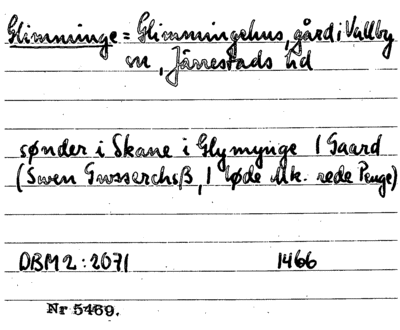 Glimminge = Glimmingehus, gård i Vallby
sn, Järrestads hd
sønder i Skane i Glymynge 1 Gaard
(Swen 1 løde Mk. rede Penge)
DBM 2:2071 1466
Nr 5469.